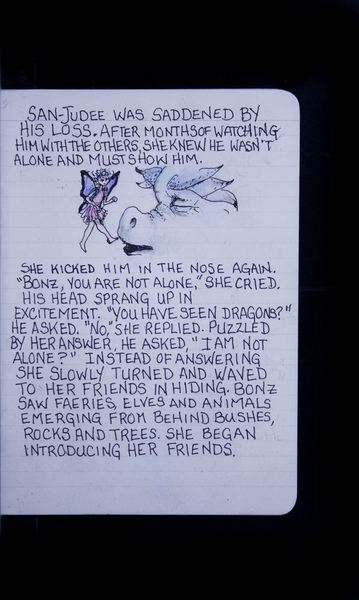 SAN-JUDEE WAS SADDENED BY
HIS LOSS. AFTER MONTHS OF WATCHING
HIM WITH THE OTHERS, SHE KNEW HE WASN'T
ALONE AND MUST SHOW HIM.
SHE KICKED HIM IN THE NOSE AGAIN.
"BONZ, YOU ARE NOT ALONE," SHE CRIED.
HIS HEAD SPRANG UP IN
EXCITEMENT. "YOU HAVE SEEN DRAGONS?"
HE ASKED. "NO," SHE REPLIED. PUZZLED
BY HER ANSWER, HE ASKED, "I AM NOT
ALONE?" INSTEAD OF ANSWERING
SHE SLOWLY TURNED AND WAVED
TO HER FRIENDS IN HIDING. BONZ
SAW FAERIES, ELVES AND ANIMALS
EMERGING FROM BEHIND BUSHES,
ROCKS AND TREES. SHE BEGAN
INTRODUCING HER FRIENDS.